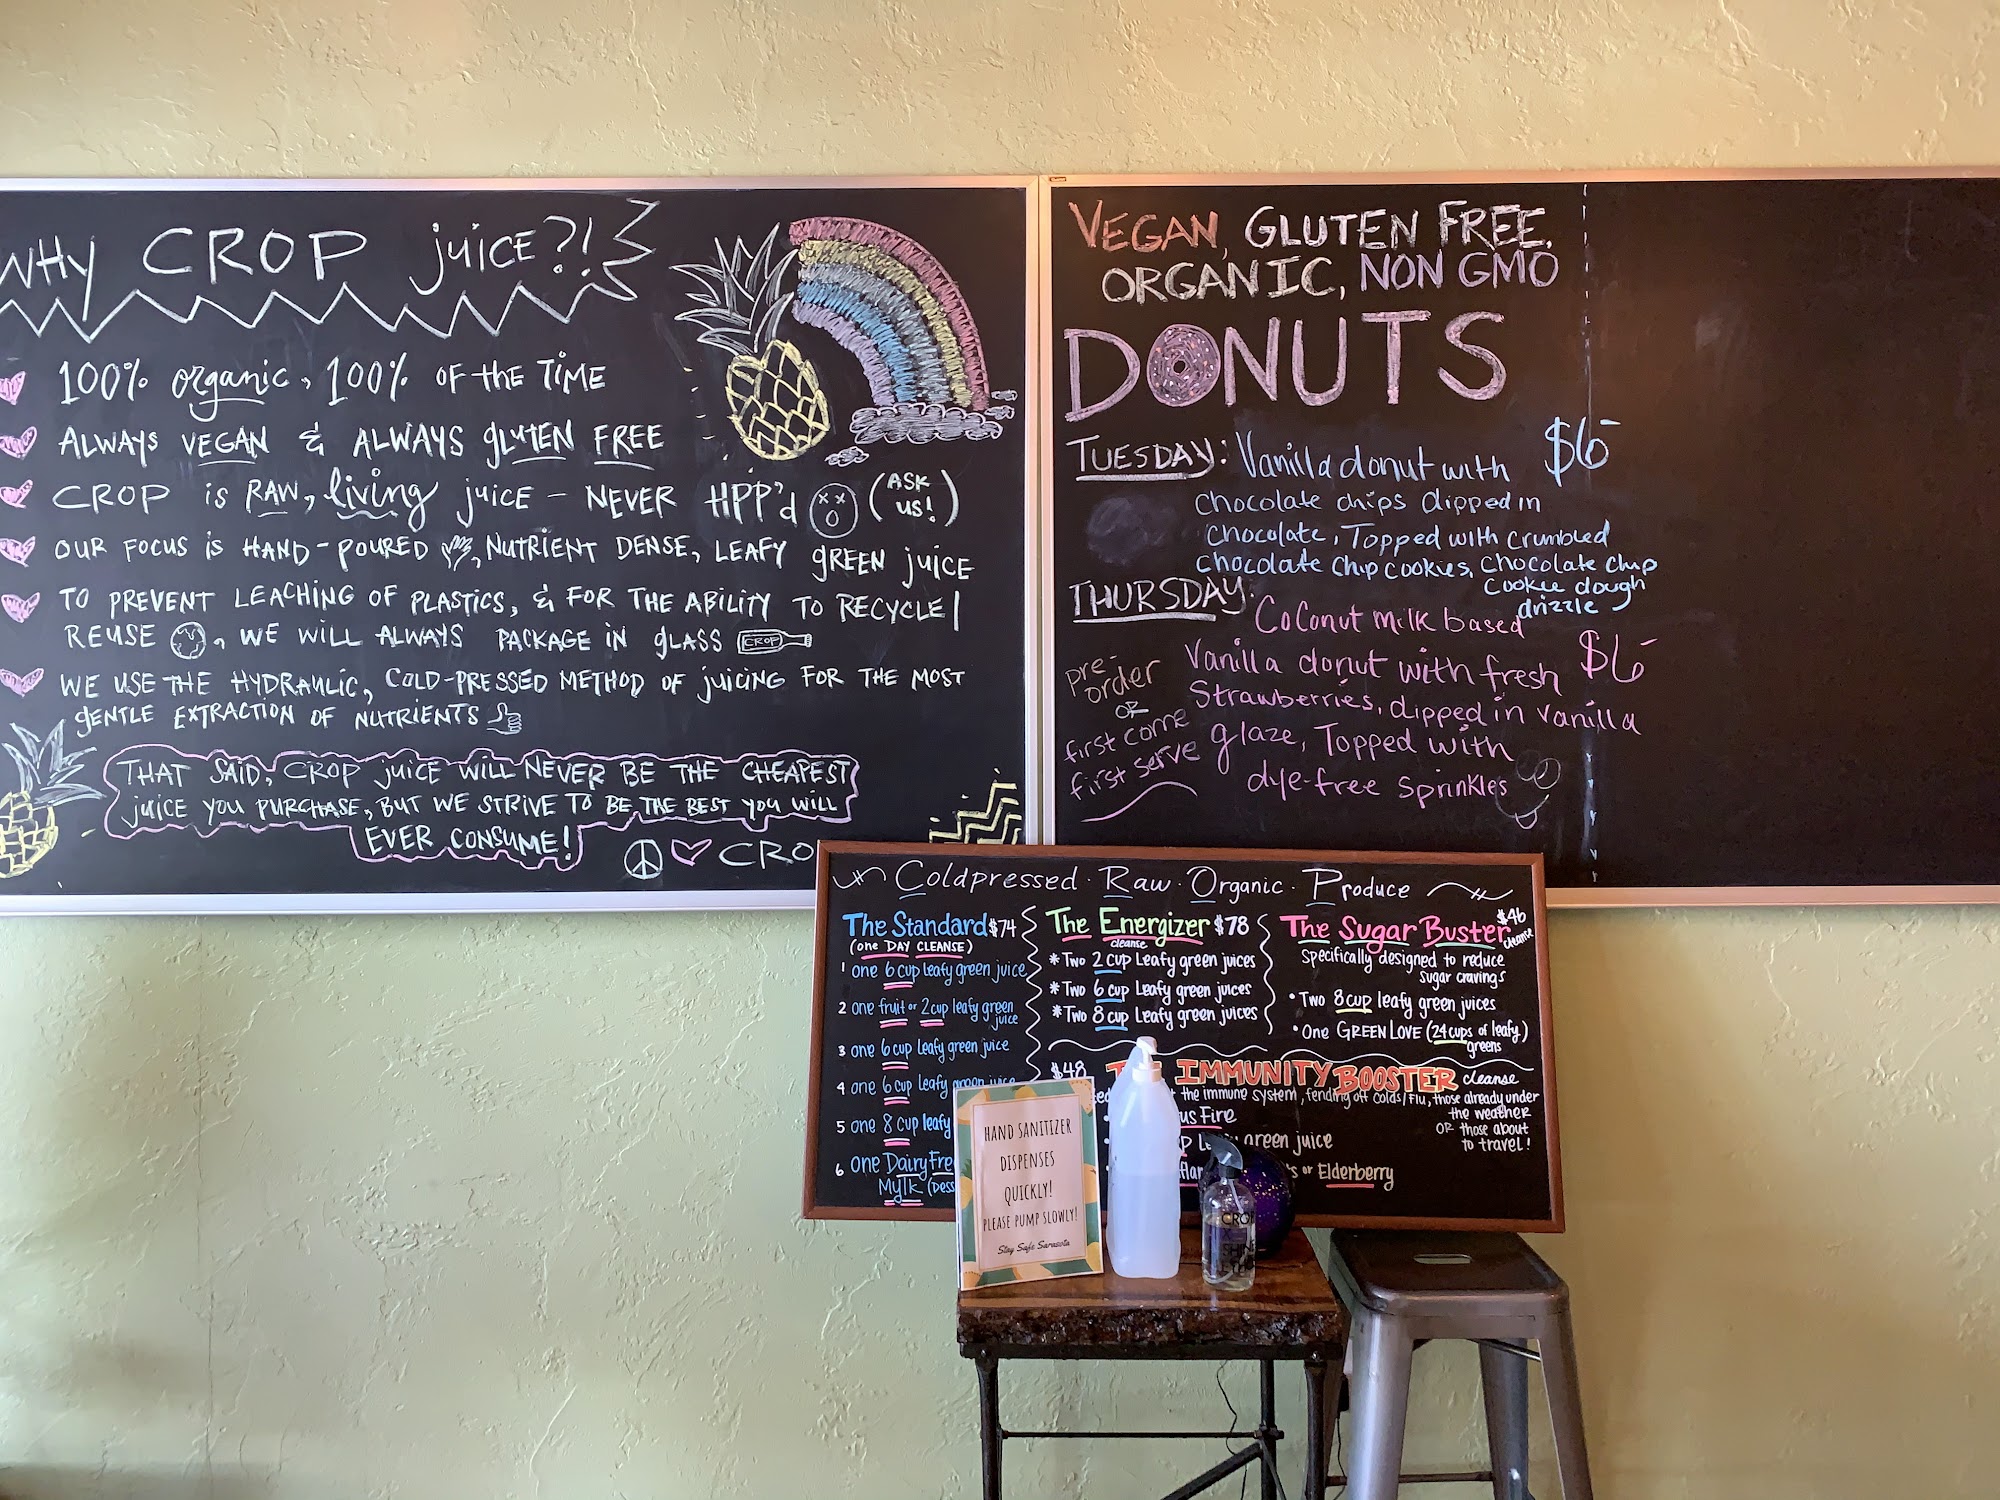 WHY CROP juice?!
100% organic, 100% OF the TIME
ALWAYS VEGAN & ALWAYS gluTEN FREE
CROP is RAW, living juice - NEVER HPP'd (ASK us!)
OUR FOCUS is HAND-POURED, NUTRIENT DENSE, LEAFY gREEN juice
TO PREVENT LEACHING OF PLASTICS, & FOR THE ABILITY TO RECYCLE/
REUSE, WE WILL ALWAYS PACKAGE IN glASS CROP
WE USE THE HYDRAULIC, COLD-PRESSED METHOD OF juicing FOR THE MOST
gENTLE EXTRACTION OF NUTRIENTS
THAT SAID, CROP juice WILL NEVER BE THE CHEAPEST
juice you PURCHASE, BUT WE STRIVE TO BE THE BEST you WILL
EVER CONSUME!
CRO
VEGAN, GLUTEN FREE,
ORGANIC, NON GMO
DONUTS
TUESDAY: Vanilla donut with $6
Chocolate chips dipped in
Chocolate, Topped with crumbled
Chocolate chip cookies, chocolate chip
Cookie dough
drizzle
THURSDAY:
Coconut milk based
Vanilla donut with fresh $6
Strawberries, dipped in vanilla
glaze, Topped with
dye-free sprinkles
pre-
order
OR
first come
first serve
Coldpressed · Raw · Organic · Produce
The Standard $74
(one DAY CLEANSE)
1 one 6 cup leafy green juice
2 one fruit or 2 cup leafy green
juice
3 one 6 cup leafy green juice
4 one 6 cup leafy green juice
5 one 8 cup leafy
6 one Dairy Free
Mylk (Dess
The Energizer $78
cleanse
* Two 2 cup Leafy green juices
* Two 6 cup Leafy green juices
* Two 8 cup Leafy green juices
The Sugar Buster $46
cleanse
Specifically designed to reduce
sugar cravings
• Two 8 cup leafy green juices
• One GREEN LOVE (24 cups of leafy
greens)
$48 IMMUNITY BOOSTER cleanse
the immune system, fending off colds/flu, those already under
the weather
OR those about
to travel!
us Fire
green juice
or Elderberry
HAND SANITIZER
DISPENSES
QUICKLY!
PLEASE PUMP SLOWLY!
Stay Safe Sarasota
CROP
X